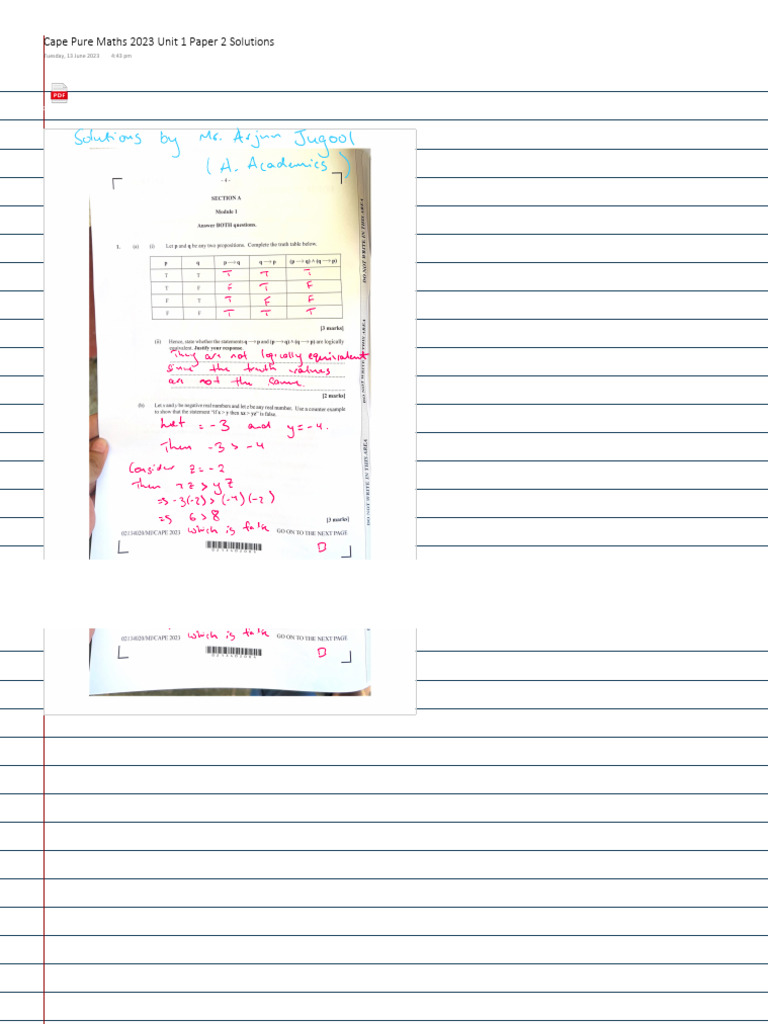 Cape Pure Maths 2023 Unit 1 Paper 2 Solutions
Tuesday, 13 June 2023 4:43 pm
PDF
Solutions by Mr. Arjun Jugool
(A. Academics)
- 4 -
SECTION A
Module 1
Answer BOTH questions.
1. (a) (i) Let p and q be any two propositions. Complete the truth table below.
p q p → q q → p (p → q) ∧ (q → p)
T T T T T
T F F T F
F T T F F
F F T T T
[3 marks]
(ii) Hence, state whether the statements q → p and (p → q) ∧ (q → p) are logically
equivalent. Justify your response.
They are not logically equivalent
since the truth values
are not the same.
[2 marks]
(b) Let x and y be negative real numbers and let z be any real number. Use a counter example
to show that the statement "if x > y then xz > yz" is false.
Let = -3 and y = -4.
Then -3 > -4
Consider z = -2
Then xz > yz
=> -3(-2) > (-4)(-2)
=> 6 > 8
[3 marks]
which is false
02134020/MJ/CAPE 2023 GO ON TO THE NEXT PAGE
DO NOT WRITE IN THIS AREA
DO NOT WRITE IN THIS AREA
DO NOT WRITE IN THIS AREA
which is false
02134020/MJ/CAPE 2023 GO ON TO THE NEXT PAGE